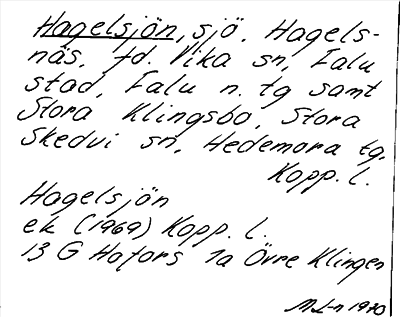 Hagelsjön, sjö. Hagels-
näs, fd. Vika sn, Falu
stad, Falu n. tg samt
Stora Klingsbo, Stora
Skedvi sn, Hedemora tg.
Kopp. l.
Hagelsjön
ek (1969) Kopp. l.
13 G Hofors 1a Övre Klingen
M L-n 1970